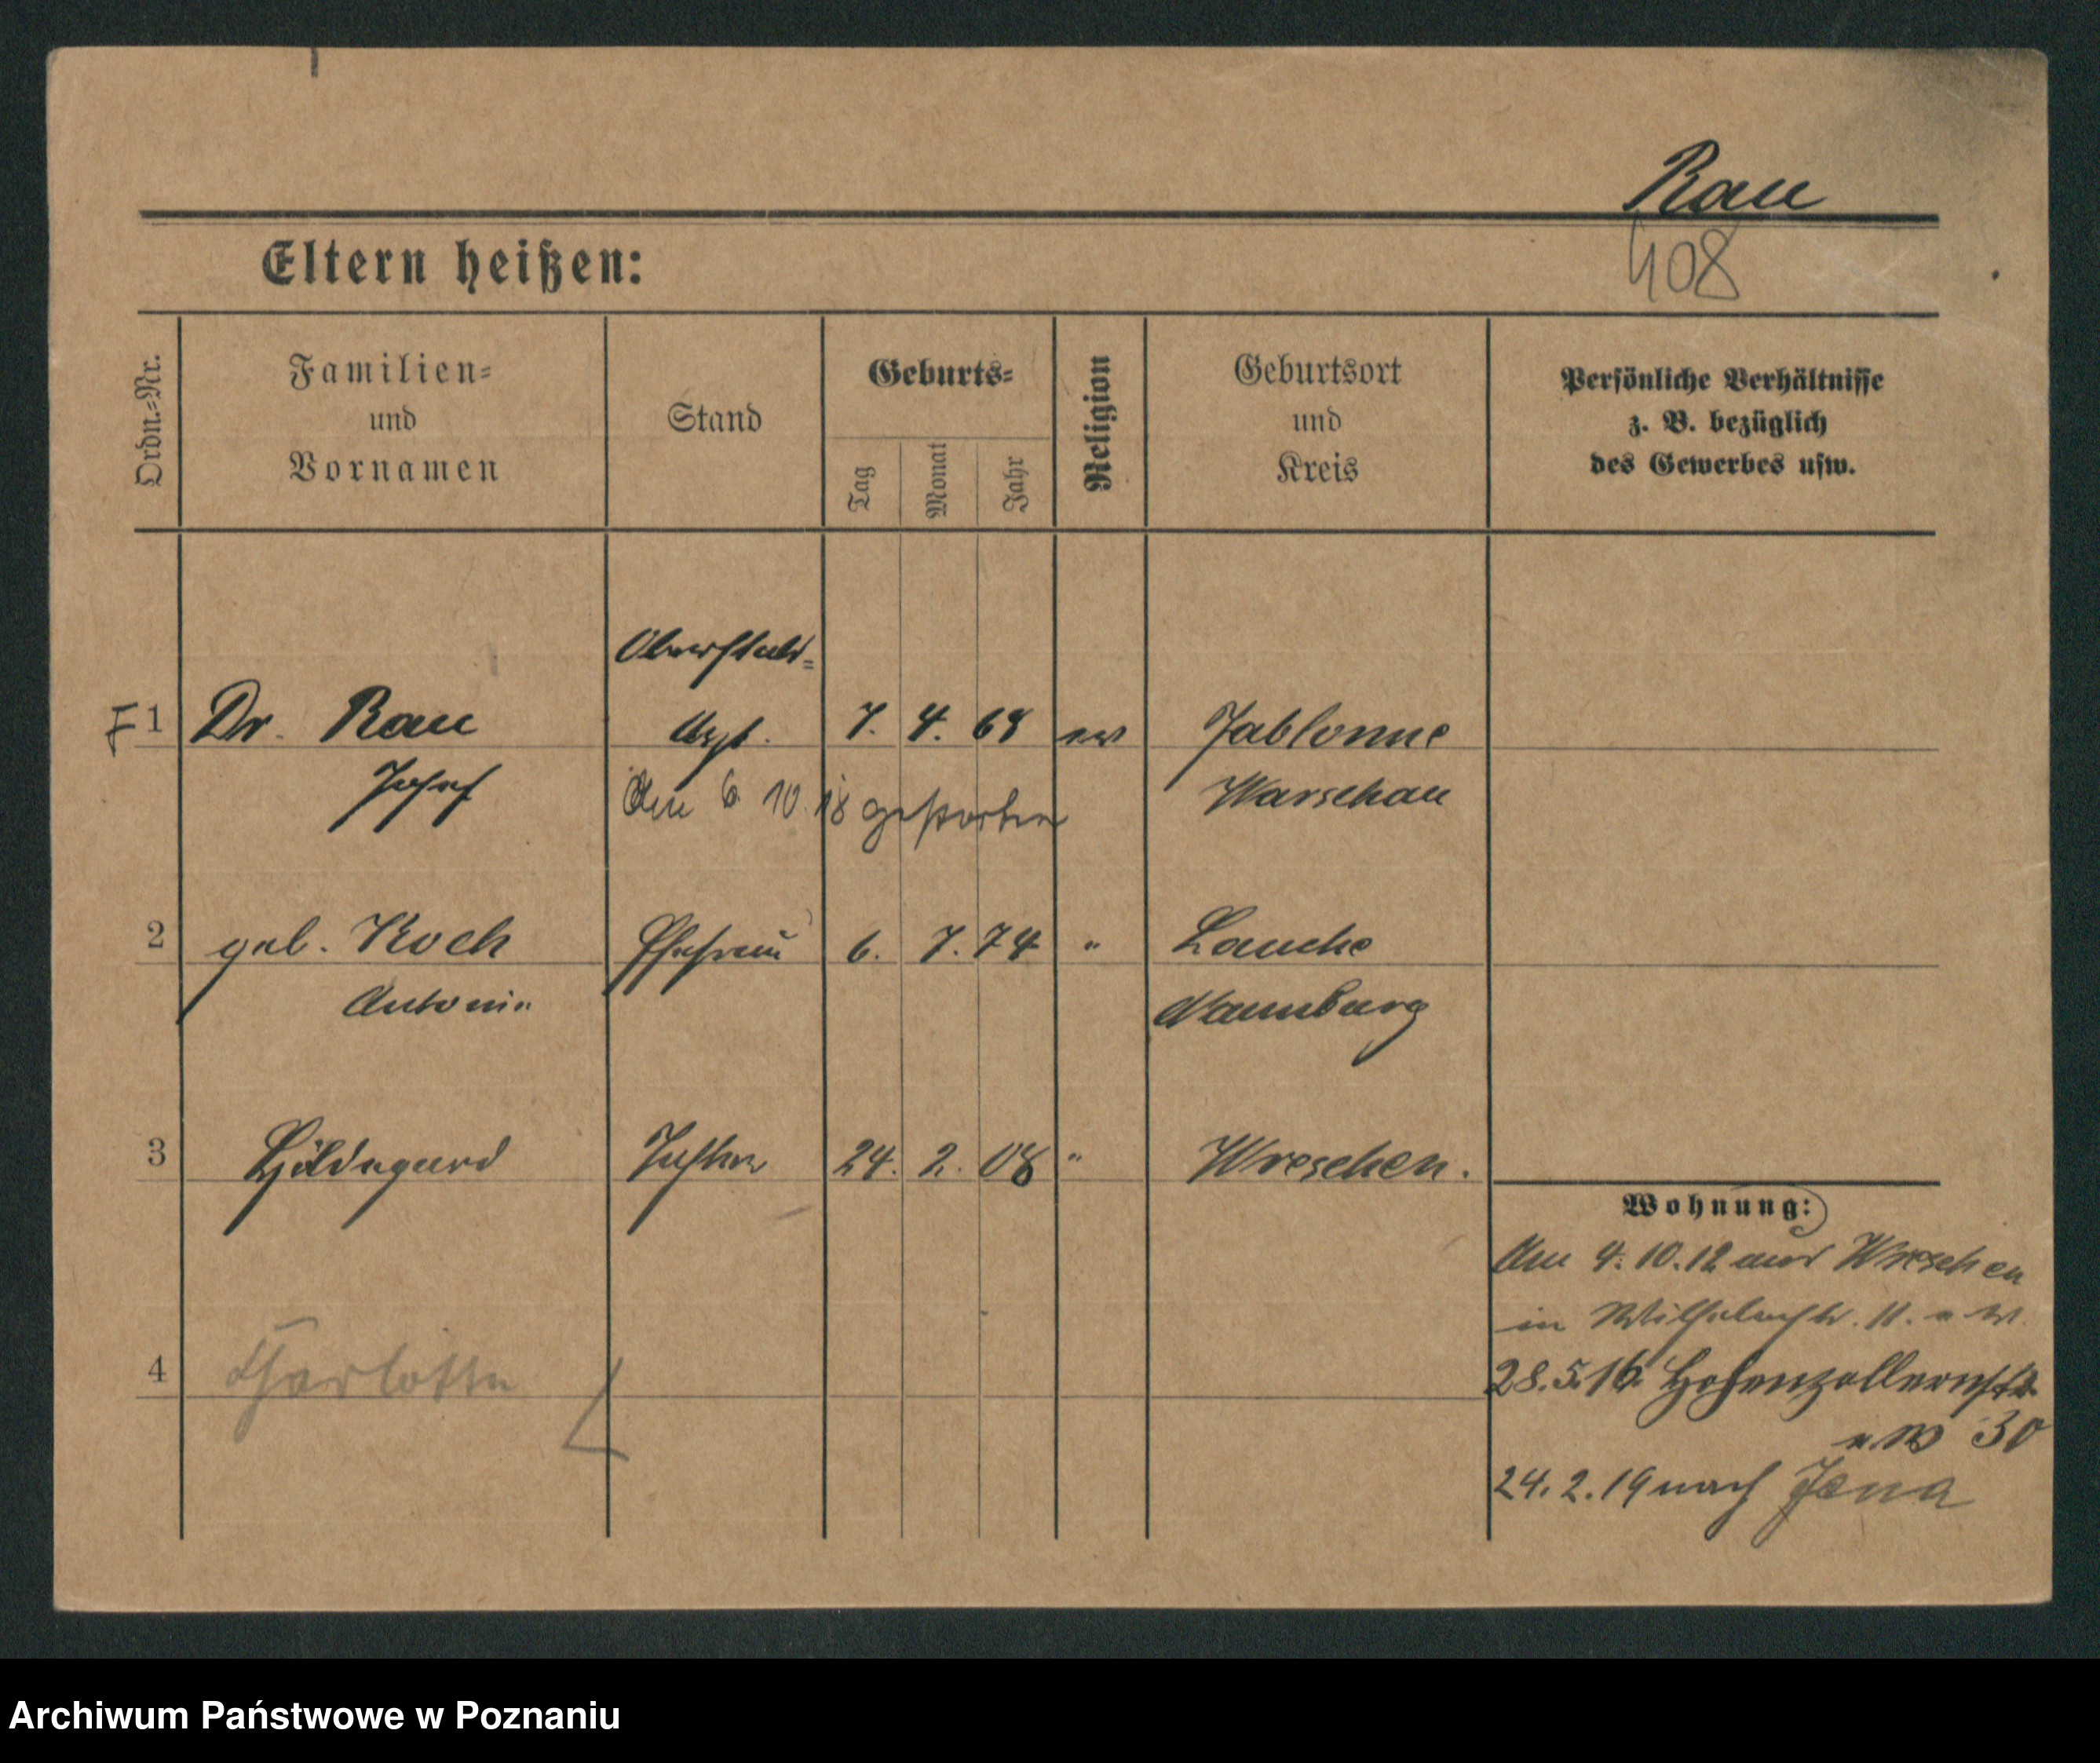 Rau
408
Eltern heißen:
Ordn.-Nr.
Familien- und Vornamen
Stand
Geburts-
Tag
Monat
Jahr
Religion
Geburtsort und Kreis
Persönliche Verhältnisse
z. B. bezüglich
des Gewerbes usw.
Oberstabs-
1 Dr. Rau Arzt. 7. 4. 68 ev Jablonne
Josef Am 6. 10. 18 gestorben Warschau
2 geb. Koch Ehefrau 6. 7. 74 " Laucha
Antonie Naumburg
3 Hildegard Tochter 24. 2. 08 " Wreschen.
Wohnung:
Am 4. 10. 12 aus Wreschen
in Wilhelmstr. 11.
4 Charlotte
28.5.16. Hohenzollernstr.
30
24. 2. 19 nach Jena
Archiwum Państwowe w Poznaniu